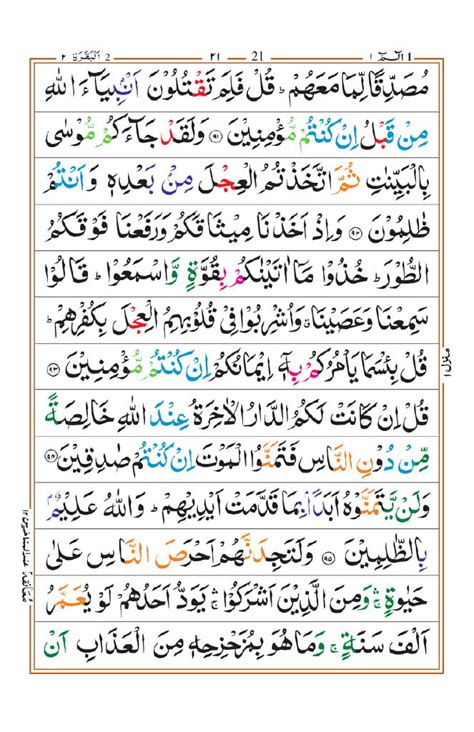 الٓمّٓ ١ 21 ٢١ 2 اَلْبَقَرَة ٢
مُصَدِّقًا لِّمَا مَعَهُمْؕ قُلْ فَلِمَ تَقْتُلُوْنَ اَنْۢبِيَآءَ اللّٰهِ
مِنْ قَبْلُ اِنْ كُنْتُمْ مُّؤْمِنِيْنَ ﴿٩١﴾ وَلَقَدْ جَآءَكُمْ مُّوْسٰى
بِالْبَيِّنٰتِ ثُمَّ اتَّخَذْتُمُ الْعِجْلَ مِنْۢ بَعْدِهٖ وَاَنْتُمْ
ظٰلِمُوْنَ ﴿٩٢﴾ وَاِذْ اَخَذْنَا مِيْثَاقَكُمْ وَرَفَعْنَا فَوْقَكُمُ
الطُّوْرَؕ خُذُوْا مَاۤ اٰتَيْنٰكُمْ بِقُوَّةٍ وَّاسْمَعُوْاؕ قَالُوْا
سَمِعْنَا وَعَصَيْنَاۗ وَاُشْرِبُوْا فِيْ قُلُوْبِهِمُ الْعِجْلَ بِكُفْرِهِمْؕ
قُلْ بِئْسَمَا يَاْمُرُكُمْ بِهٖۤ اِيْمَانُكُمْ اِنْ كُنْتُمْ مُّؤْمِنِيْنَ ﴿٩٣﴾
قُلْ اِنْ كَانَتْ لَكُمُ الدَّارُ الْاٰخِرَةُ عِنْدَ اللّٰهِ خَالِصَةً
مِّنْ دُوْنِ النَّاسِ فَتَمَنَّوُا الْمَوْتَ اِنْ كُنْتُمْ صٰدِقِيْنَ ﴿٩٤﴾
وَلَنْ يَّتَمَنَّوْهُ اَبَدًۢا بِمَا قَدَّمَتْ اَيْدِيْهِمْؕ وَاللّٰهُ عَلِيْمٌۢ
بِالظّٰلِمِيْنَ ﴿٩٥﴾ وَلَتَجِدَنَّهُمْ اَحْرَصَ النَّاسِ عَلٰى
حَيٰوةٍۛۚ وَمِنَ الَّذِيْنَ اَشْرَكُوْاۛۚ يَوَدُّ اَحَدُهُمْ لَوْ يُعَمَّرُ
اَلْفَ سَنَةٍۚ وَمَا هُوَ بِمُزَحْزِحِهٖ مِنَ الْعَذَابِ اَنْ
منزل ١